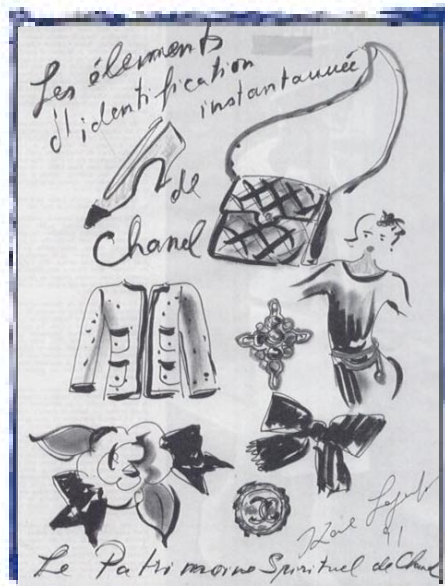 Les élements
d'identification
instantannée
de
Chanel
Karl Lagerfeld
91
Le Patrimoine Spirituel de Chanel